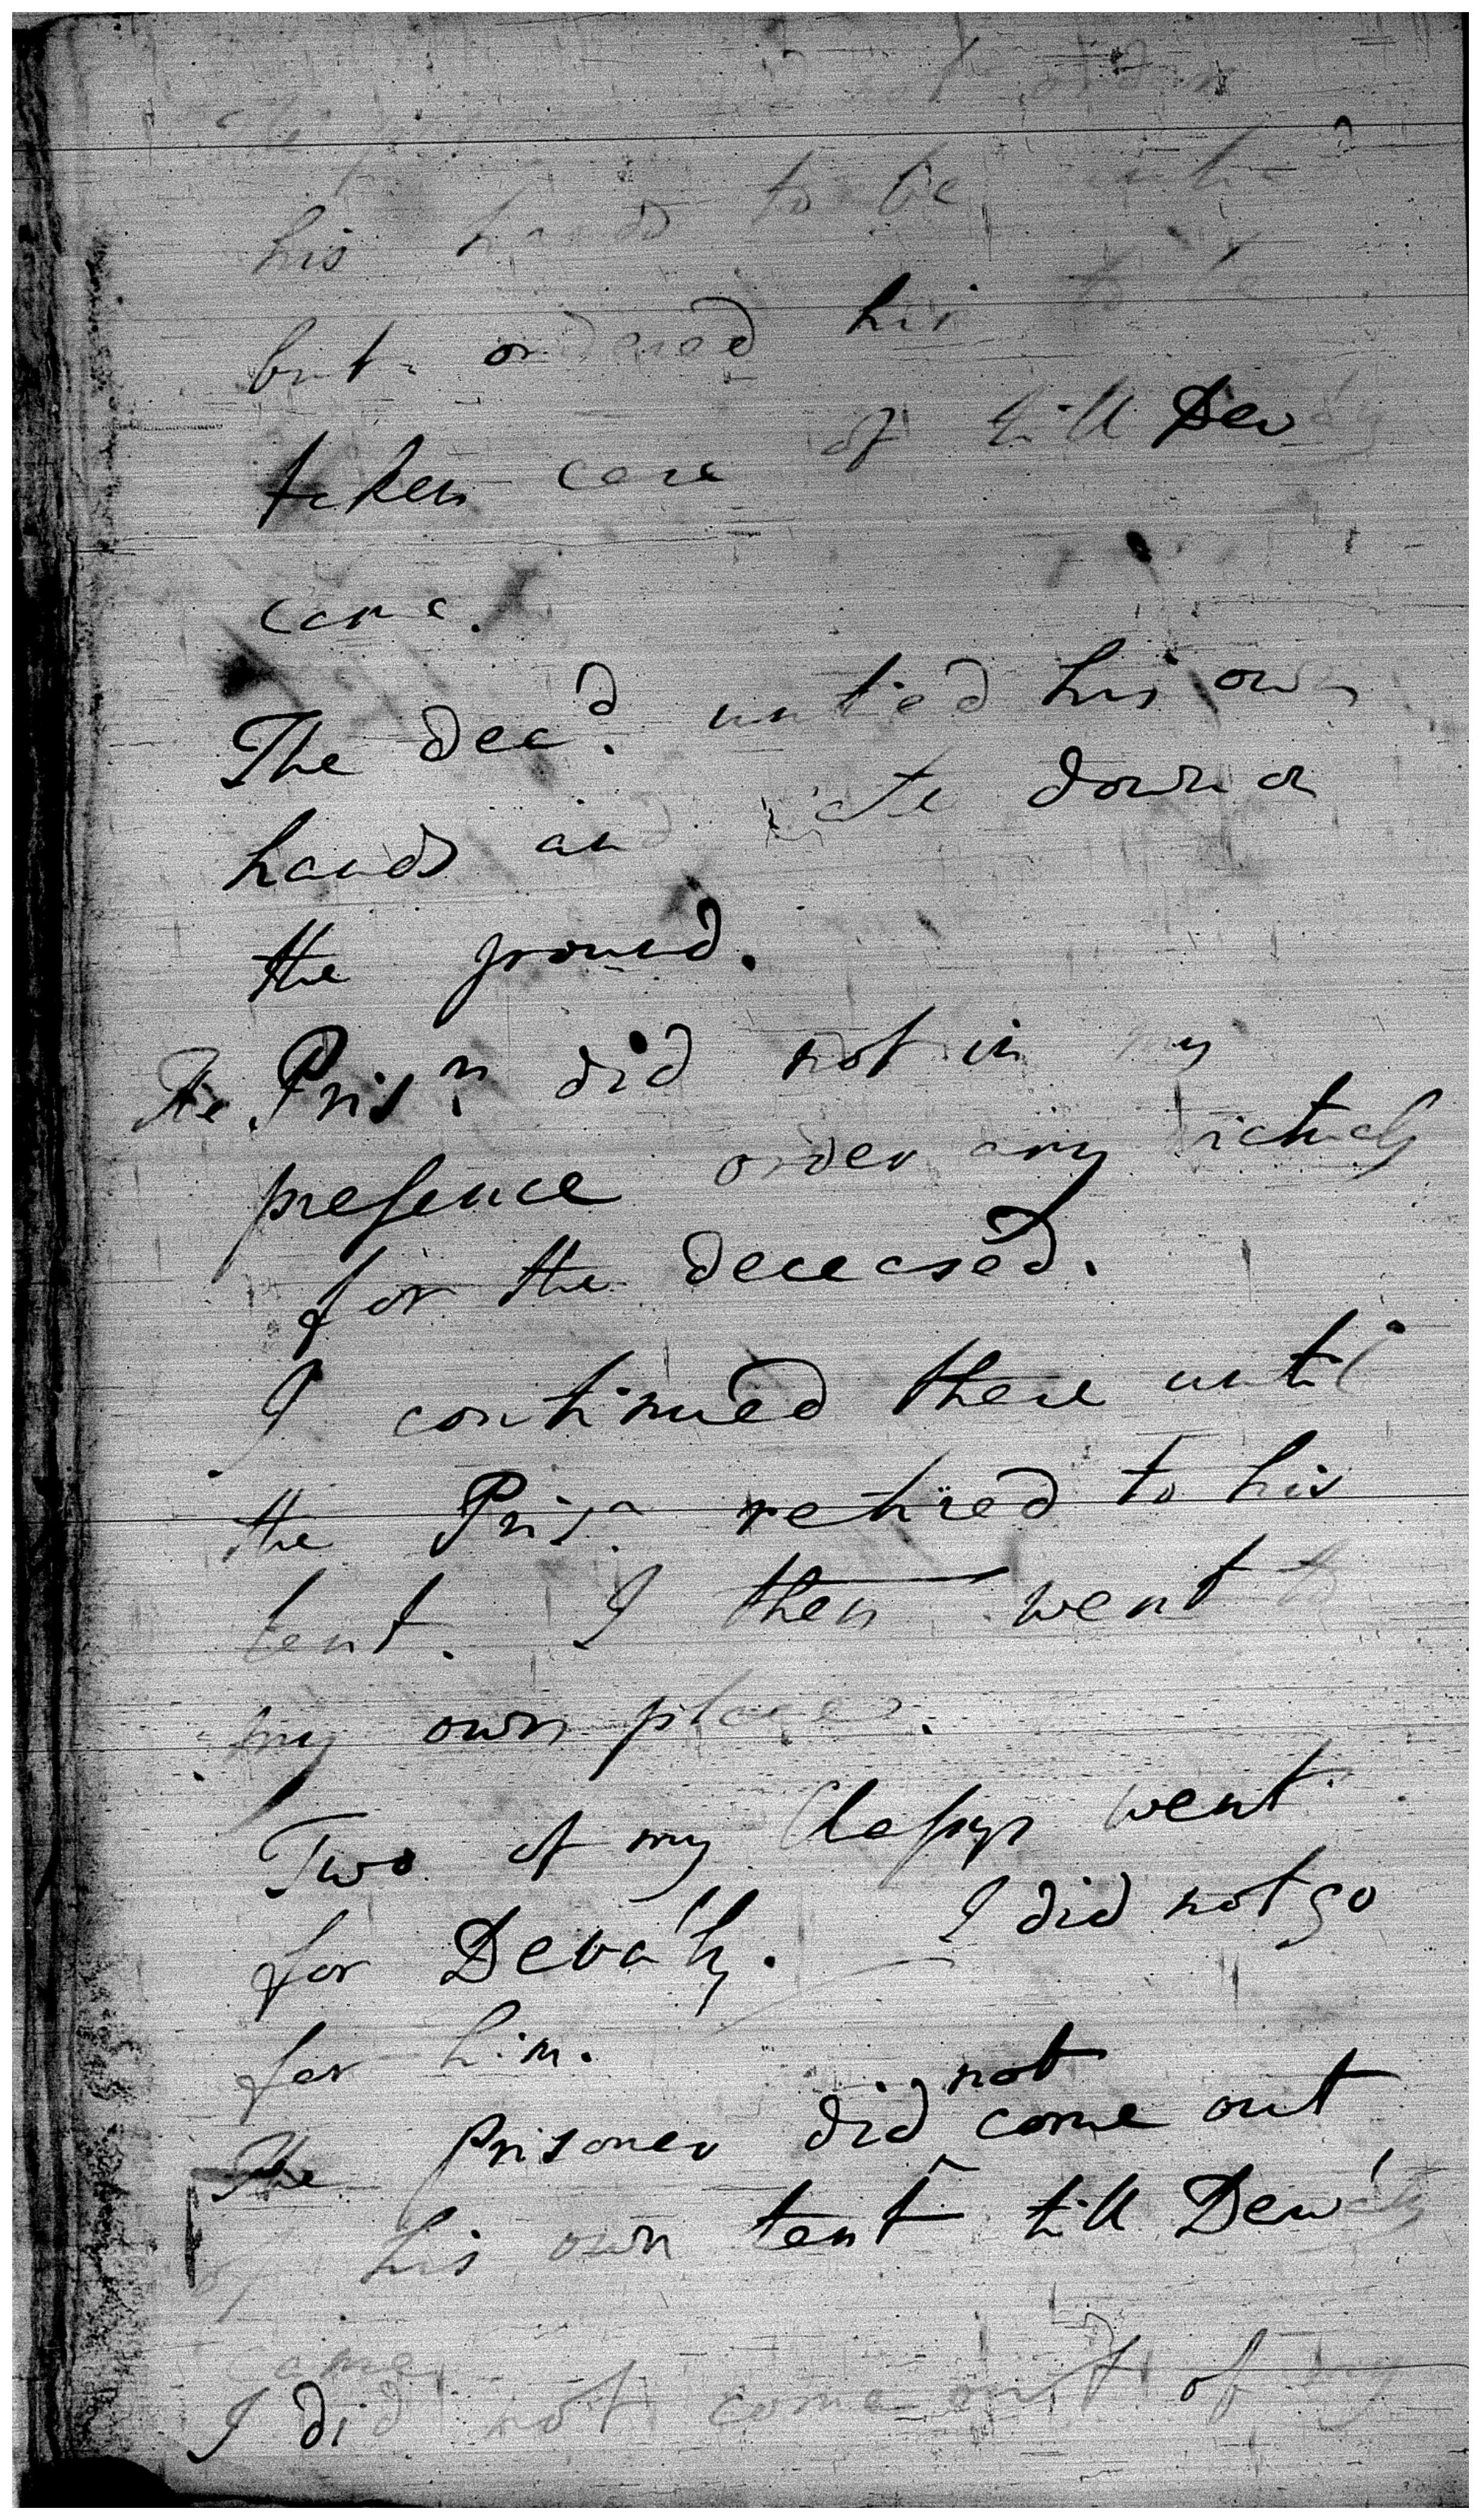 not order
his hands to be
but ordered him to be
taken care of till Dewaly
came.
The Decd. untied his own
hands and sate down on
the ground.
The Prisn. did not in my
presence order any victuals
for the deceased.
I continued there until
the Prisr. retired to his
tent. I then went to
my own place.
Two of my Classys went
for Devaly. I did not go
for him.
The prisoner did not come out
of his own tent till Dewaly
came
I did not come out of my